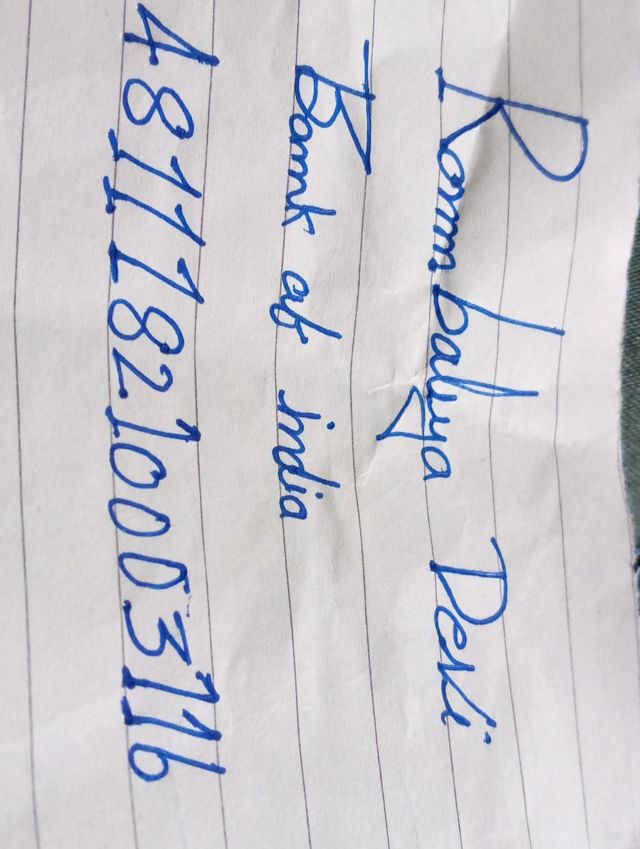 Rambalya Devi
Bank of india
481118210003116